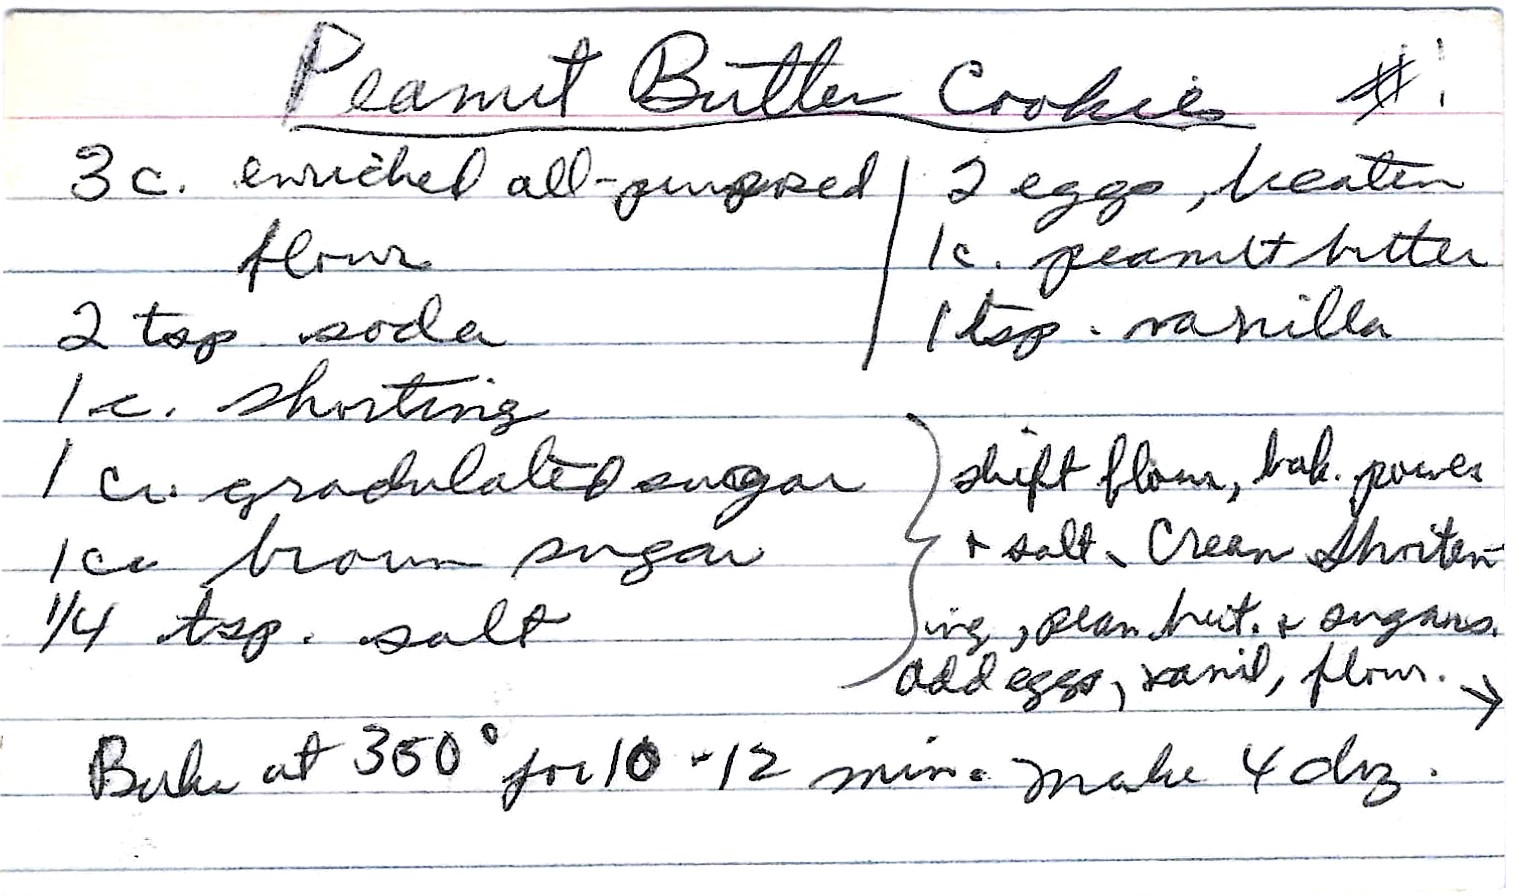 Peanut Butter Cookies #1
3 c. enriched all-purposed
flour
2 tsp soda
1 c. shorting
1 c. gradulated sugar
1 c. brown sugar
1/4 tsp. salt
2 eggs, beaten
1c. peanut butter
1 tsp. vanilla
shift flour, bak. power
+ salt. Cream Shorten-
ing, pean but. + sugars.
add eggs, vanil, flour. →
Bake at 350° for 10-12 min. make 4 doz.